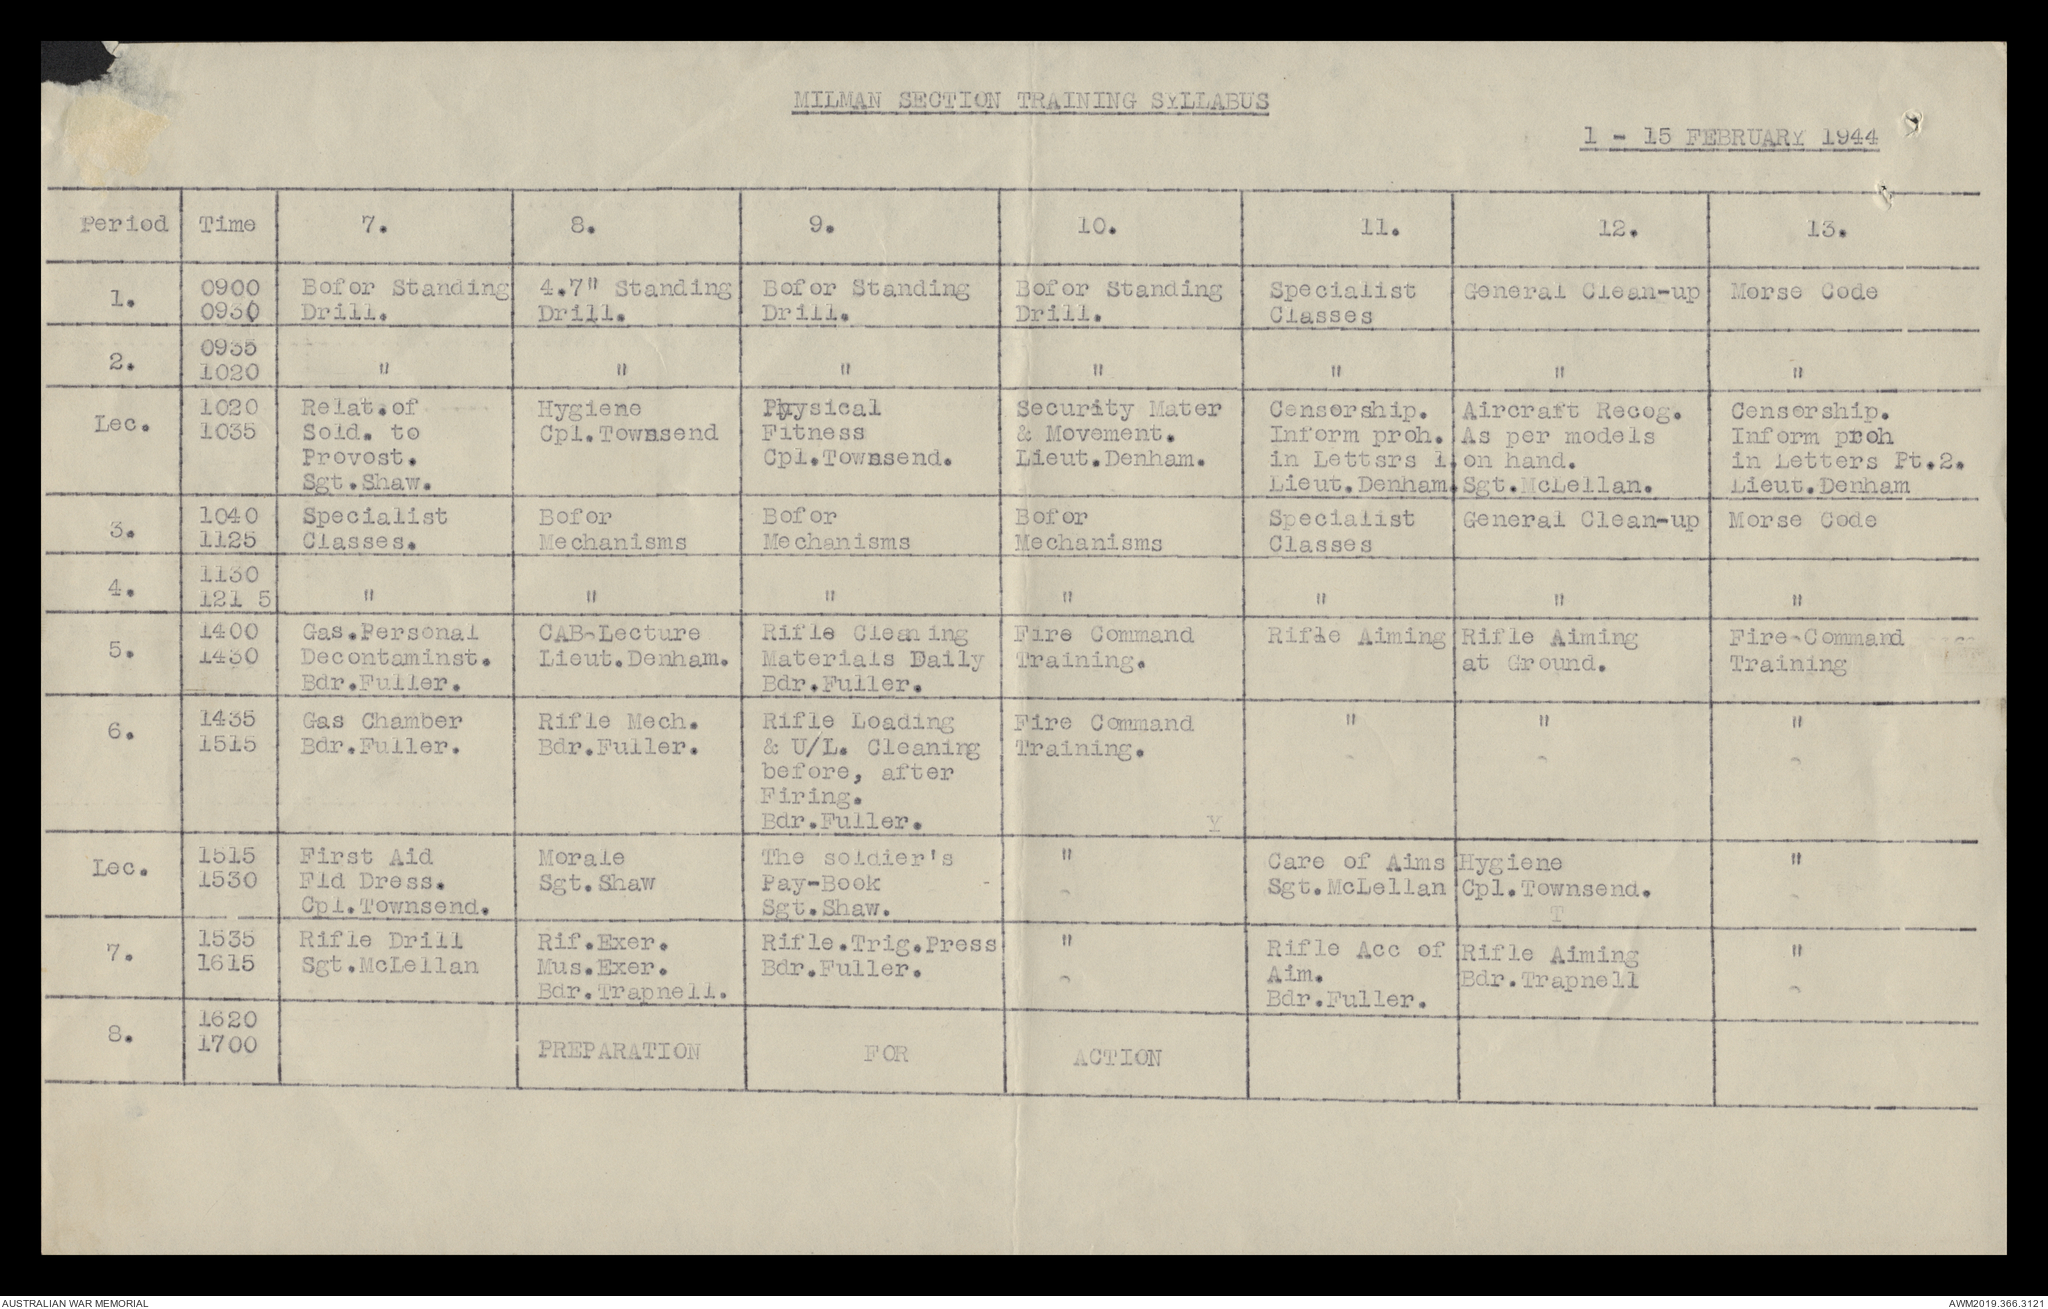 MILMAN SECTION TRAINING SYLLABUS
1 - 15 FEBRUARY 1944
Period Time 7. 8. 9. 10. 11. 12. 13.
1.
0900
0930
Bofor Standing
Drill.
4.7" Standing
Drill.
Bofor Standing
Drill.
Bofor Standing
Drill.
Specialist
Classes
General Clean-up
Morse Code
2.
0935
1020
" " " " " " "
Lec.
1020
1035
Relat.of
Sold. to
Provost.
Sgt.Shaw.
Hygiene
Cpl.Townsend
Physical
Fitness
Cpl.Townsend.
Security Mater
& Movement.
Lieut.Denham.
Censorship.
Inform proh.
in Lettsrs 1.
Lieut.Denham.
Aircraft Recog.
As per models
on hand.
Sgt.McLellan.
Censorship.
Inform proh
in Letters Pt.2.
Lieut.Denham
3.
1040
1125
Specialist
Classes.
Bofor
Mechanisms
Bofor
Mechanisms
Bofor
Mechanisms
Specialist
Classes
General Clean-up
Morse Code
4.
1130
121 5
" " " " " " "
5.
1400
1430
Gas.Personal
Decontaminst.
Bdr.Fuller.
CAB-Lecture
Lieut.Denham.
Rifle Clean ing
Materials Daily
Bdr.Fuller.
Fire Command
Training.
Rifle Aiming
Rifle Aiming
at Ground.
Fire-Command
Training
6.
1435
1515
Gas Chamber
Bdr.Fuller.
Rifle Mech.
Bdr.Fuller.
Rifle Loading
& U/L. Cleaning
before, after
Firing.
Bdr.Fuller.
Fire Command
Training.
Y
" " "
Lec.
1515
1530
First Aid
Fld Dress.
Cpl.Townsend.
Morale
Sgt.Shaw
The soldier's
Pay-Book
Sgt.Shaw.
"
Care of Aims
Sgt.McLellan
Hygiene
Cpl.Townsend.
T
"
7.
1535
1615
Rifle Drill
Sgt.McLellan
Rif.Exer.
Mus.Exer.
Bdr.Trapnell.
Rifle.Trig.Press
Bdr.Fuller.
"
Rifle Acc of
Aim.
Bdr.Fuller.
Rifle Aiming
Bdr.Trapnell
"
8.
1620
1700
PREPARATION FOR ACTION
AUSTRALIAN WAR MEMORIAL
AWM2019.366.3121